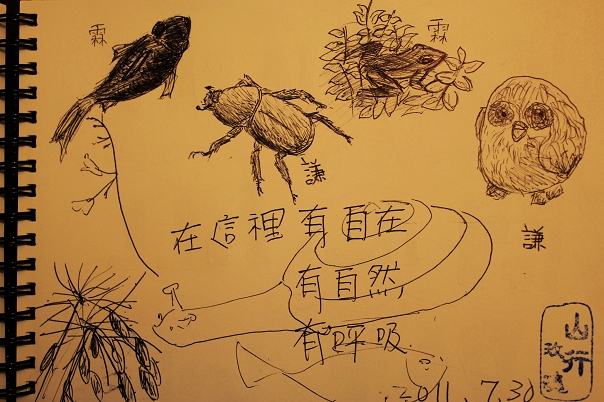 霖
霖
謙
謙
在這裡有自在
有自然
有呼吸
2011.7.30
山行